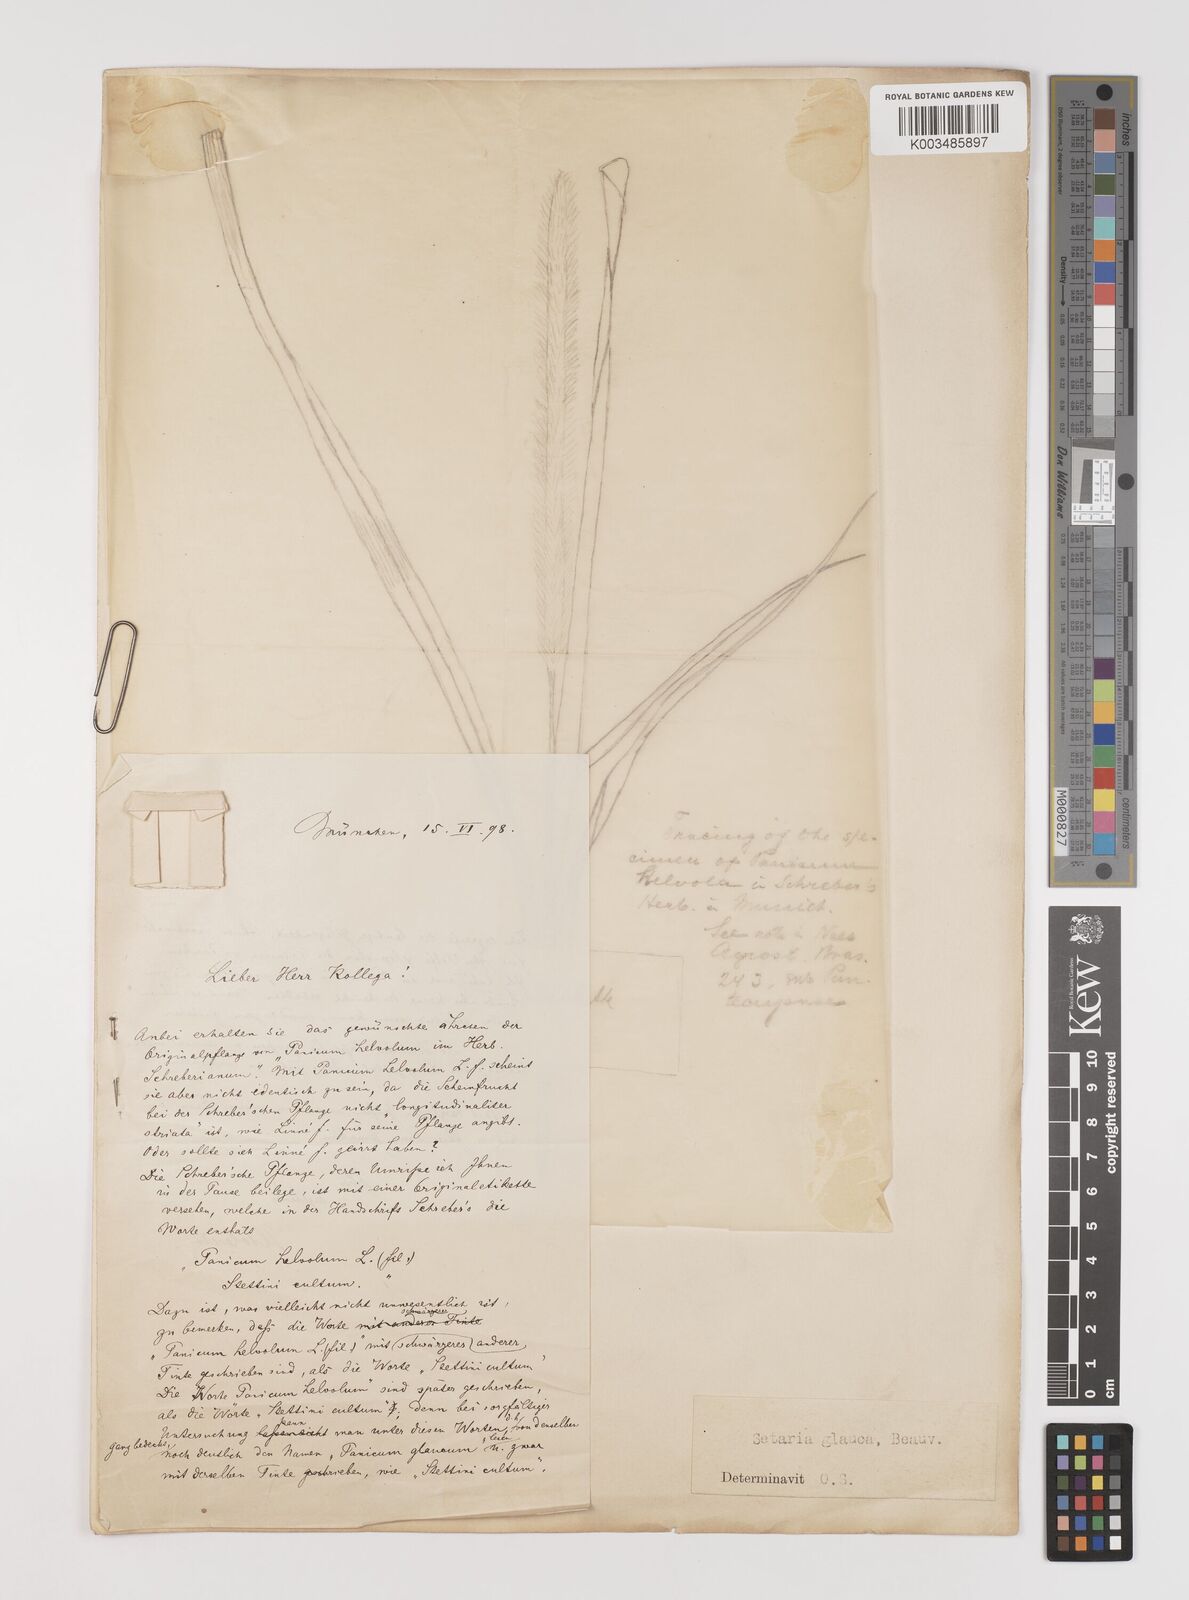 ROYAL BOTANIC GARDENS KEW
K003485897
München, 15. VI. 98.
Lieber Herr Kollega!
Anbei erhalten Sie das gewünschte Ährchen der
Originalpflanze von „Panicum helvolum im Herb.
Schreberianum". Mit Panicum helvolum L. f. scheint
sie aber nicht identisch zu sein, da die Scheinfrucht
bei der Schreber'schen Pflanze nicht „longitudinaliter
striata" ist, wie Linné f. für seine Pflanze angibt.
Oder sollte sich Linné f. geirrt haben?
Die Schreber'sche Pflanze, deren Umrisse ich Ihnen
in der Pause beilege, ist mit einer Originaletikette
versehen, welche in der Handschrift Schreber's die
Worte enthält
„Panicum helvolum L. (fil.)
Stettini cultum."
Dazu ist, was vielleicht nicht unwesentlich ist,
schwärzerer
zu bemerken, daß die Worte mit anderer Tinte
„Panicum helvolum L. (fil.)" mit schwärzerer anderer
Tinte geschrieben sind, als die Worte „Stettini cultum"
Die Worte Panicum helvolum" sind später geschrieben,
als die Worte „Stettini cultum"; denn bei sorgfältiger
Untersuchung kann man unter diesen Worten, d. h. von denselben
ganz bedeckt, noch deutlich den Namen „Panicum glaucum" lesen u. zwar
mit derselben Tinte geschrieben, wie „Stettini cultum".
Tracing of the spe-
cimen of Panicum
helvolum in Schreber's
Herb. in Munich.
See note in Nees
Agrost. Bras.
243, sub Pan.
Setaria glauca, Beauv.
Determinavit O.S.
inches
Density
Don Williams
M000827
Royal Botanic Gardens
Kew
copyright reserved
10
9
8
7
6
5
4
3
2
1
0
cm